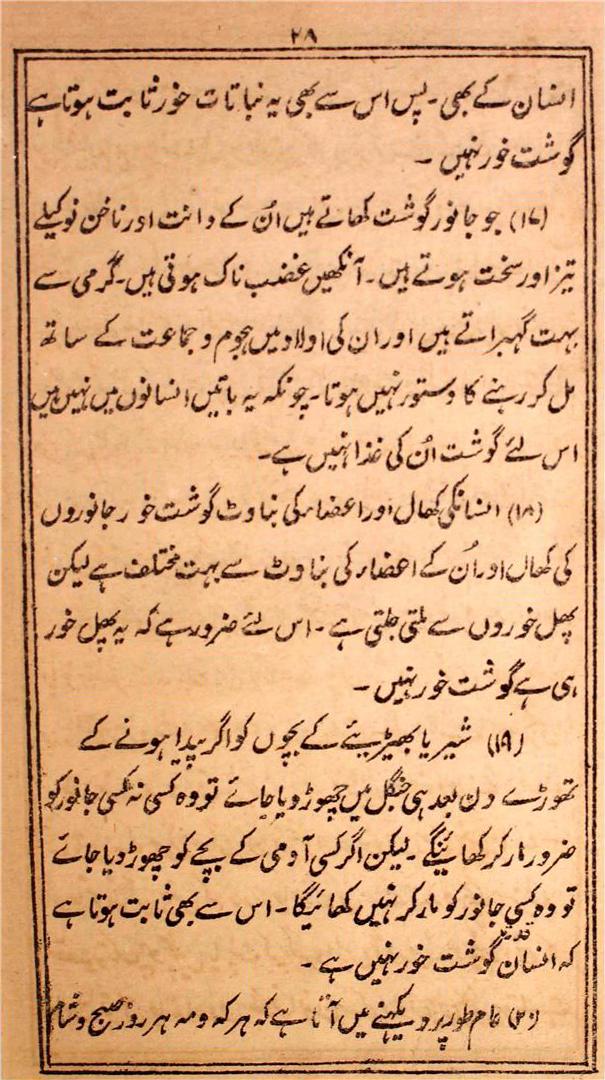 ۲۸
انسان کے بھی ۔ پس اس سے بھی یہ نباتات خور ثابت ہوتا ہے
گوشت خور نہیں ۔
(۱۷) جو جانور گوشت کھاتے ہیں اُن کے دانت اور ناخن نوکیلے
تیز اور سخت ہوتے ہیں ۔ آنکھیں غضب ناک ہوتی ہیں ۔ گرمی سے
بہت گھبراتے ہیں اور ان کی اولاد میں ہجوم و جماعت کے ساتھ
مل کر رہنے کا دستور نہیں ہوتا ۔ چونکہ یہ باتیں انسانوں میں نہیں ہیں
اس لئے گوشت اُن کی غذا نہیں ہے ۔
(۱۸) انسانکی کھال اور اعضاء کی بناوٹ گوشت خور جانوروں
کی کھال اور اُن کے اعضاء کی بناوٹ سے بہت مختلف ہے لیکن
پھل خوروں سے ملتی جلتی ہے ۔ اس لئے ضرور ہے کہ یہ پھل خور
ہی ہے گوشت خور نہیں ۔
(۱۹) شیر یا بھیڑیئے کے بچوں کو اگر پیدا ہونے کے
تھوڑے دن بعد ہی جنگل میں چھوڑ دیا جائے تو وہ کسی نہ کسی جانور کو
ضرور مار کر کھائینگے ۔ لیکن اگر کسی آدمی کے بچے کو چھوڑ دیا جائے
تو وہ کسی جانور کو مار کر نہیں کھائیگا ۔ اس سے بھی ثابت ہوتا ہے
کہ انسان گوشت خور نہیں ہے ۔
(۲۰) عام طور پر دیکھنے میں آتا ہے کہ ہر کہ و مہ ہر روز صبح و شام